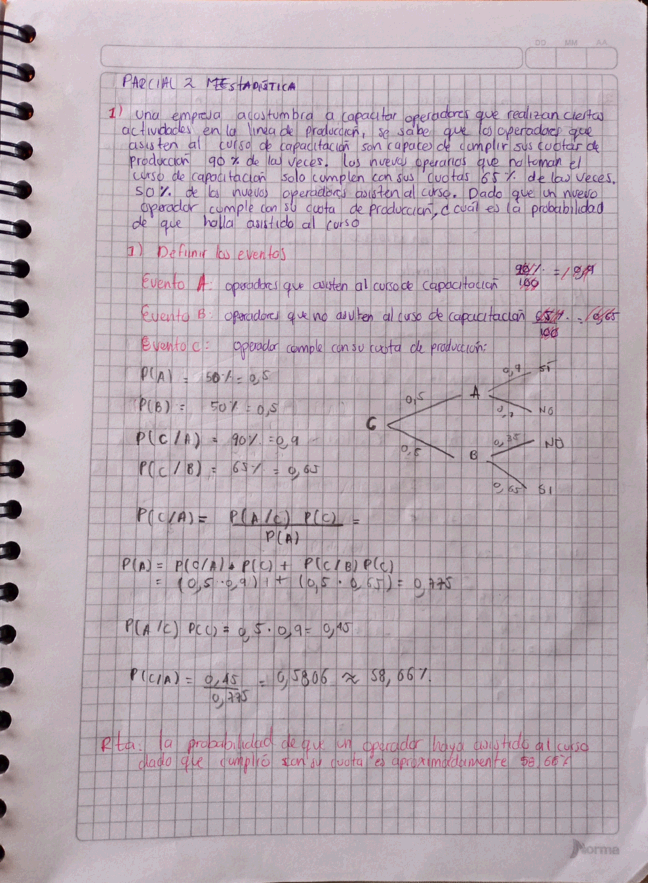 DD MM AA
PARCIAL 2 MESTADISTICA
1) Una empresa acostumbra a capacitar operadores que realizan ciertas
actividades en la linea de produccion, se sabe que los operadores que
asisten al curso de capacitación son capaces de cumplir sus cuotas de
produccion 90% de las veces. Los nuevos operarios que no toman el
curso de capacitación solo cumplen con sus cuotas 65% de las veces.
50% de los nuevos operadores asisten al curso. Dado que un nuevo
operador cumple con su cuota de produccion, ¿cuál es la probabilidad
de que halla asistido al curso
1) Definir los eventos
Evento A: operadores que asisten al curso de capacitación 90%/100 = 0,9
Evento B: operadores que no asisten al curso de capacitación 65%/100 = 0,65
Evento C: operador cumple con su cuota de producción:
P(A) = 50% = 0,5
P(B) = 50% = 0,5
P(C/A) = 90% = 0,9
P(C/B) = 65% = 0,65
C 0,5 A 0,9 SI
0,1 NO
0,5 B 0,35 NO
0,65 SI
P(C/A) = P(A/C) P(C) =
P(A)
P(A) = P(C/A) * P(C) + P(C/B) P(C)
= (0,5 · 0,9) + (0,5 · 0,65) = 0,775
P(A/C) P(C) = 0,5 · 0,9 = 0,45
P(C/A) = 0,45 = 0,5806 ≈ 58,06%.
0,775
Rta: la probabilidad de que un operador haya asistido al curso
dado que cumplió con su cuota es aproximadamente 58,06%
Norma